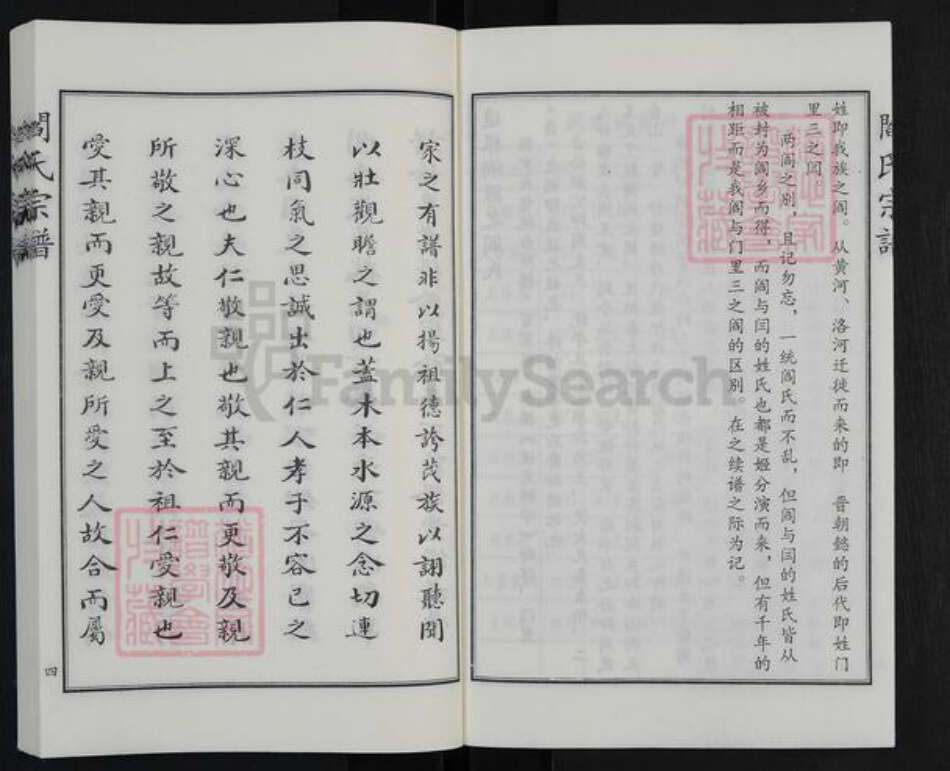 閻氏宗
姓即我族之阎。从黄河、洛河迁徙而来的即 晋朝懿的后代即姓门
里三之闫
两阎之别，且记勿忘，一统阎氏而不乱，但阎与闫的姓氏皆从
被封为阎乡而得，而阎与闫的姓氏也都是姬分演而来，但有千年的
相距而是我阎与门里三之阎的区别。在之续谱之际为记。
家之有譜非以揚祖德誇茂族以詡聽聞
以壯觀瞻之謂也蓋木本水源之念切連
枝同氣之思誠出於仁人孝子不容已之
深心也夫仁敬親也敬其親而更敬及親
所敬之親故等而上之至於祖仁愛親也
愛其親而更愛及親所愛之人故合而屬
閻氏宗譜
四
FamilySearch